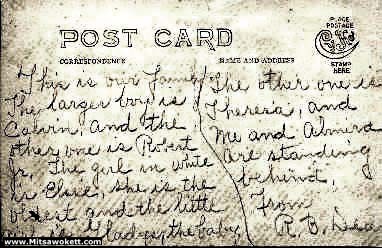 POST CARD
CORRESPONDENCE
NAME AND ADDRESS
PLACE
POSTAGE
STAMP
HERE
This is our family
The larger boy is
Calvin, and the
other one is Robert
Jr. The girl in white
is Elsie, she is the
oldest and the little
one is Gladys, the baby,
The other one is
Theresa, and
Me and Almira
are standing
behind,
From
R. B.
www.Mitsawokett.com